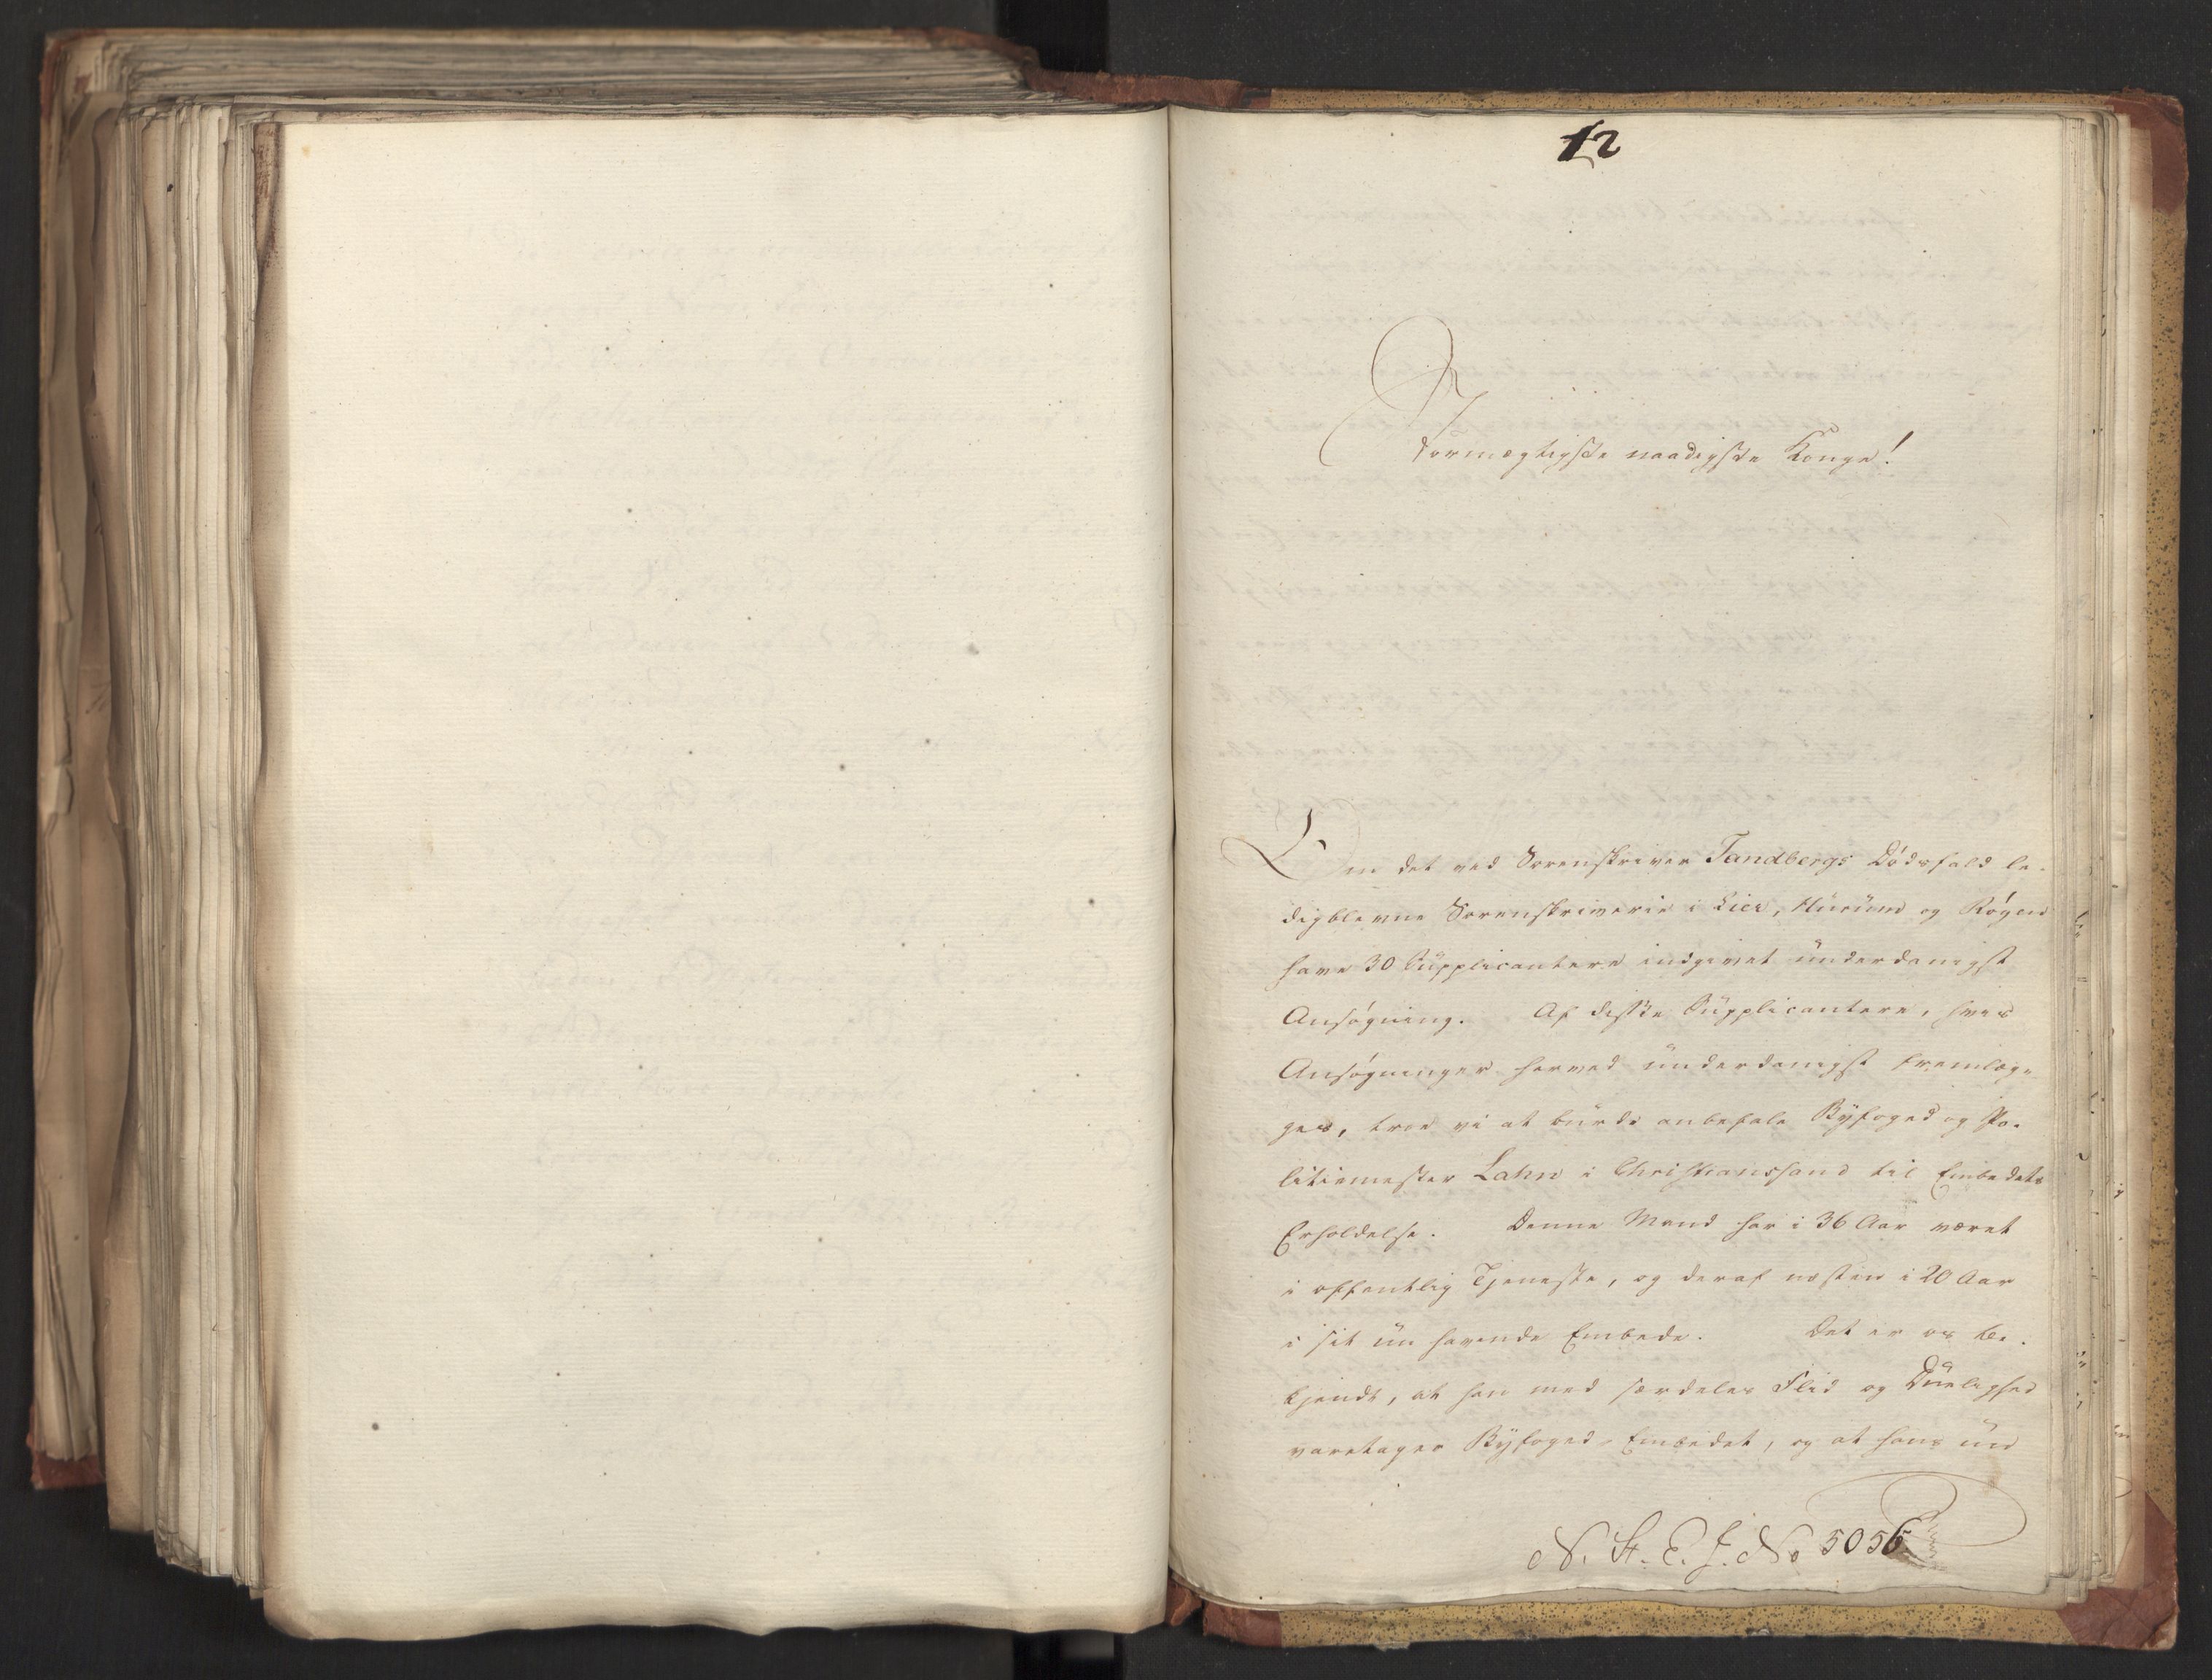 12
Stormægtigste naadigste Konge!
Om det ved Sorenskriver Tandbergs Dødsfald le-
digblevne Sorenskriverie i Lier, Hurum og Røgen
have 30 Supplicantere indgivet underdanigst
Ansøgning. Af disse Supplicantere, hvis
Ansøgninger herved underdanigst fremlæg-
ges, troe vi at burde anbefale Byfoged og Po-
litiemester Lahn i Christianssand til Embedets
Erholdelse. Denne Mand har i 36 Aar været
i offentlig Tjeneste, og deraf næsten i 20 Aar
i sit nu havende Embede. Det er os be-
kjendt, at han med særdeles Flid og Duelighed
varetager Byfoged-Embedet, og at hans nu
N. St. E. J. No 5056.